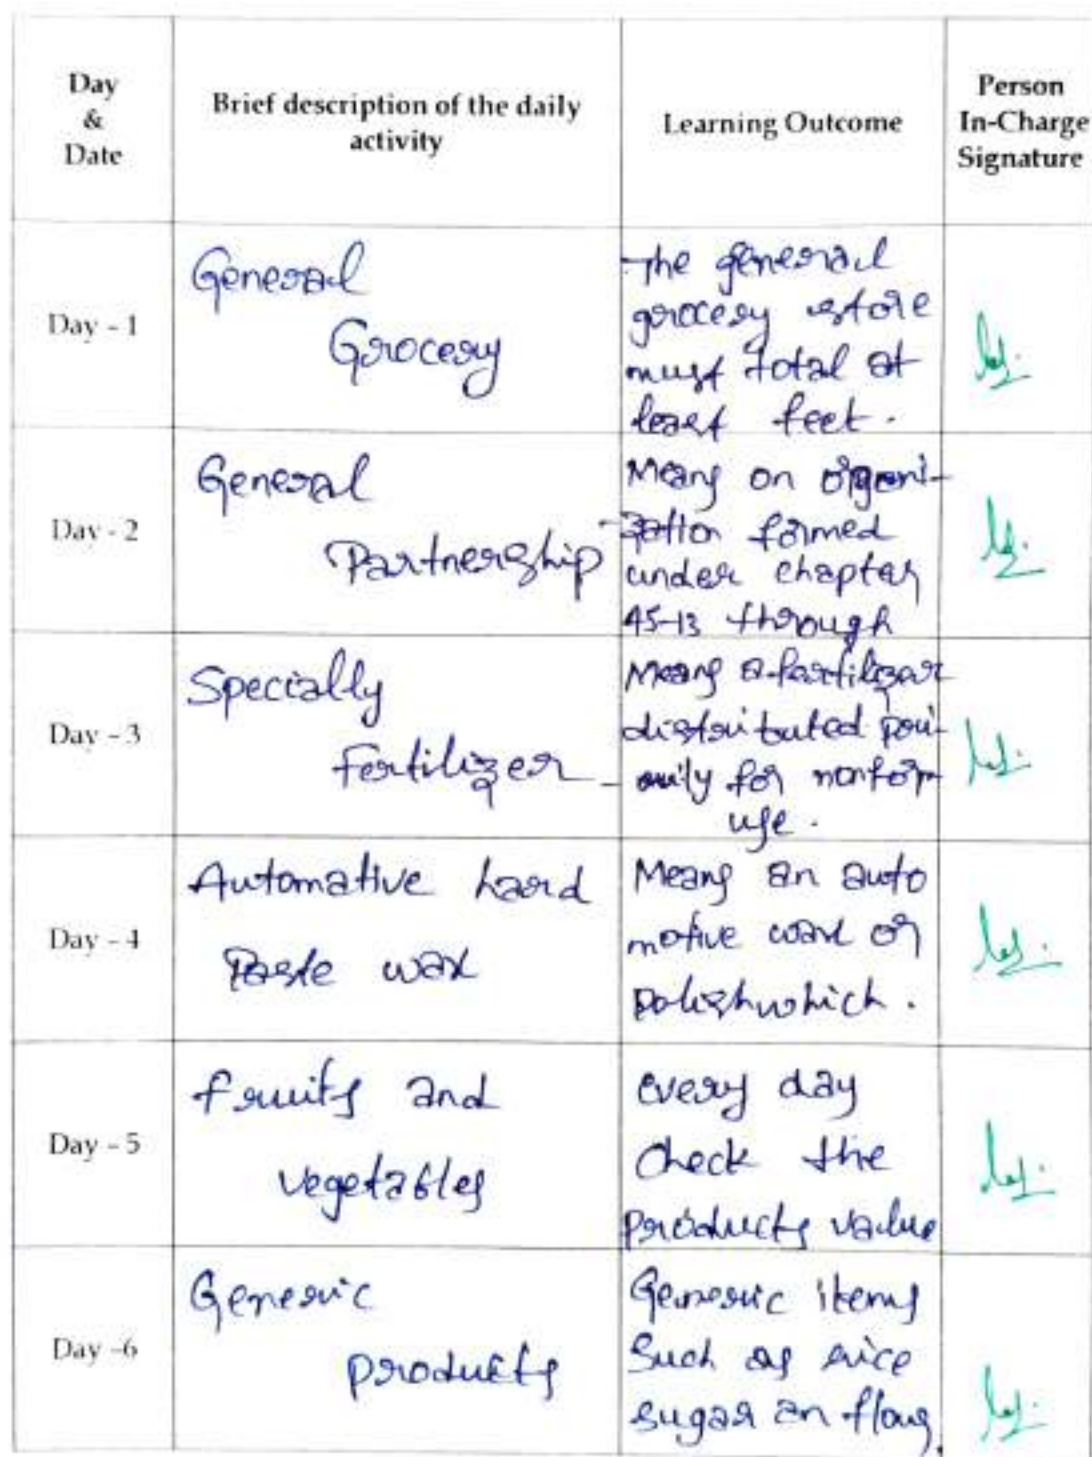 Day
&
Date
Brief description of the daily
activity
Learning Outcome
Person
In-Charge
Signature
Day - 1
General
Grocery
The general
grocery store
must total at
least feet.
Day - 2
General
Partnership
Means on organi-
zation formed
under chapter
45-13 through
Day - 3
Specially
Fertilizer
Means a fertilizer
distributed pri-
marily for nonform
use.
Day - 4
Automative hard
Paste wax
Means an auto
motive wax or
polish which.
Day - 5
fruits and
vegetables
every day
check the
products value
Day -6
Generic
products
Generic items
such as rice
sugar an flour.